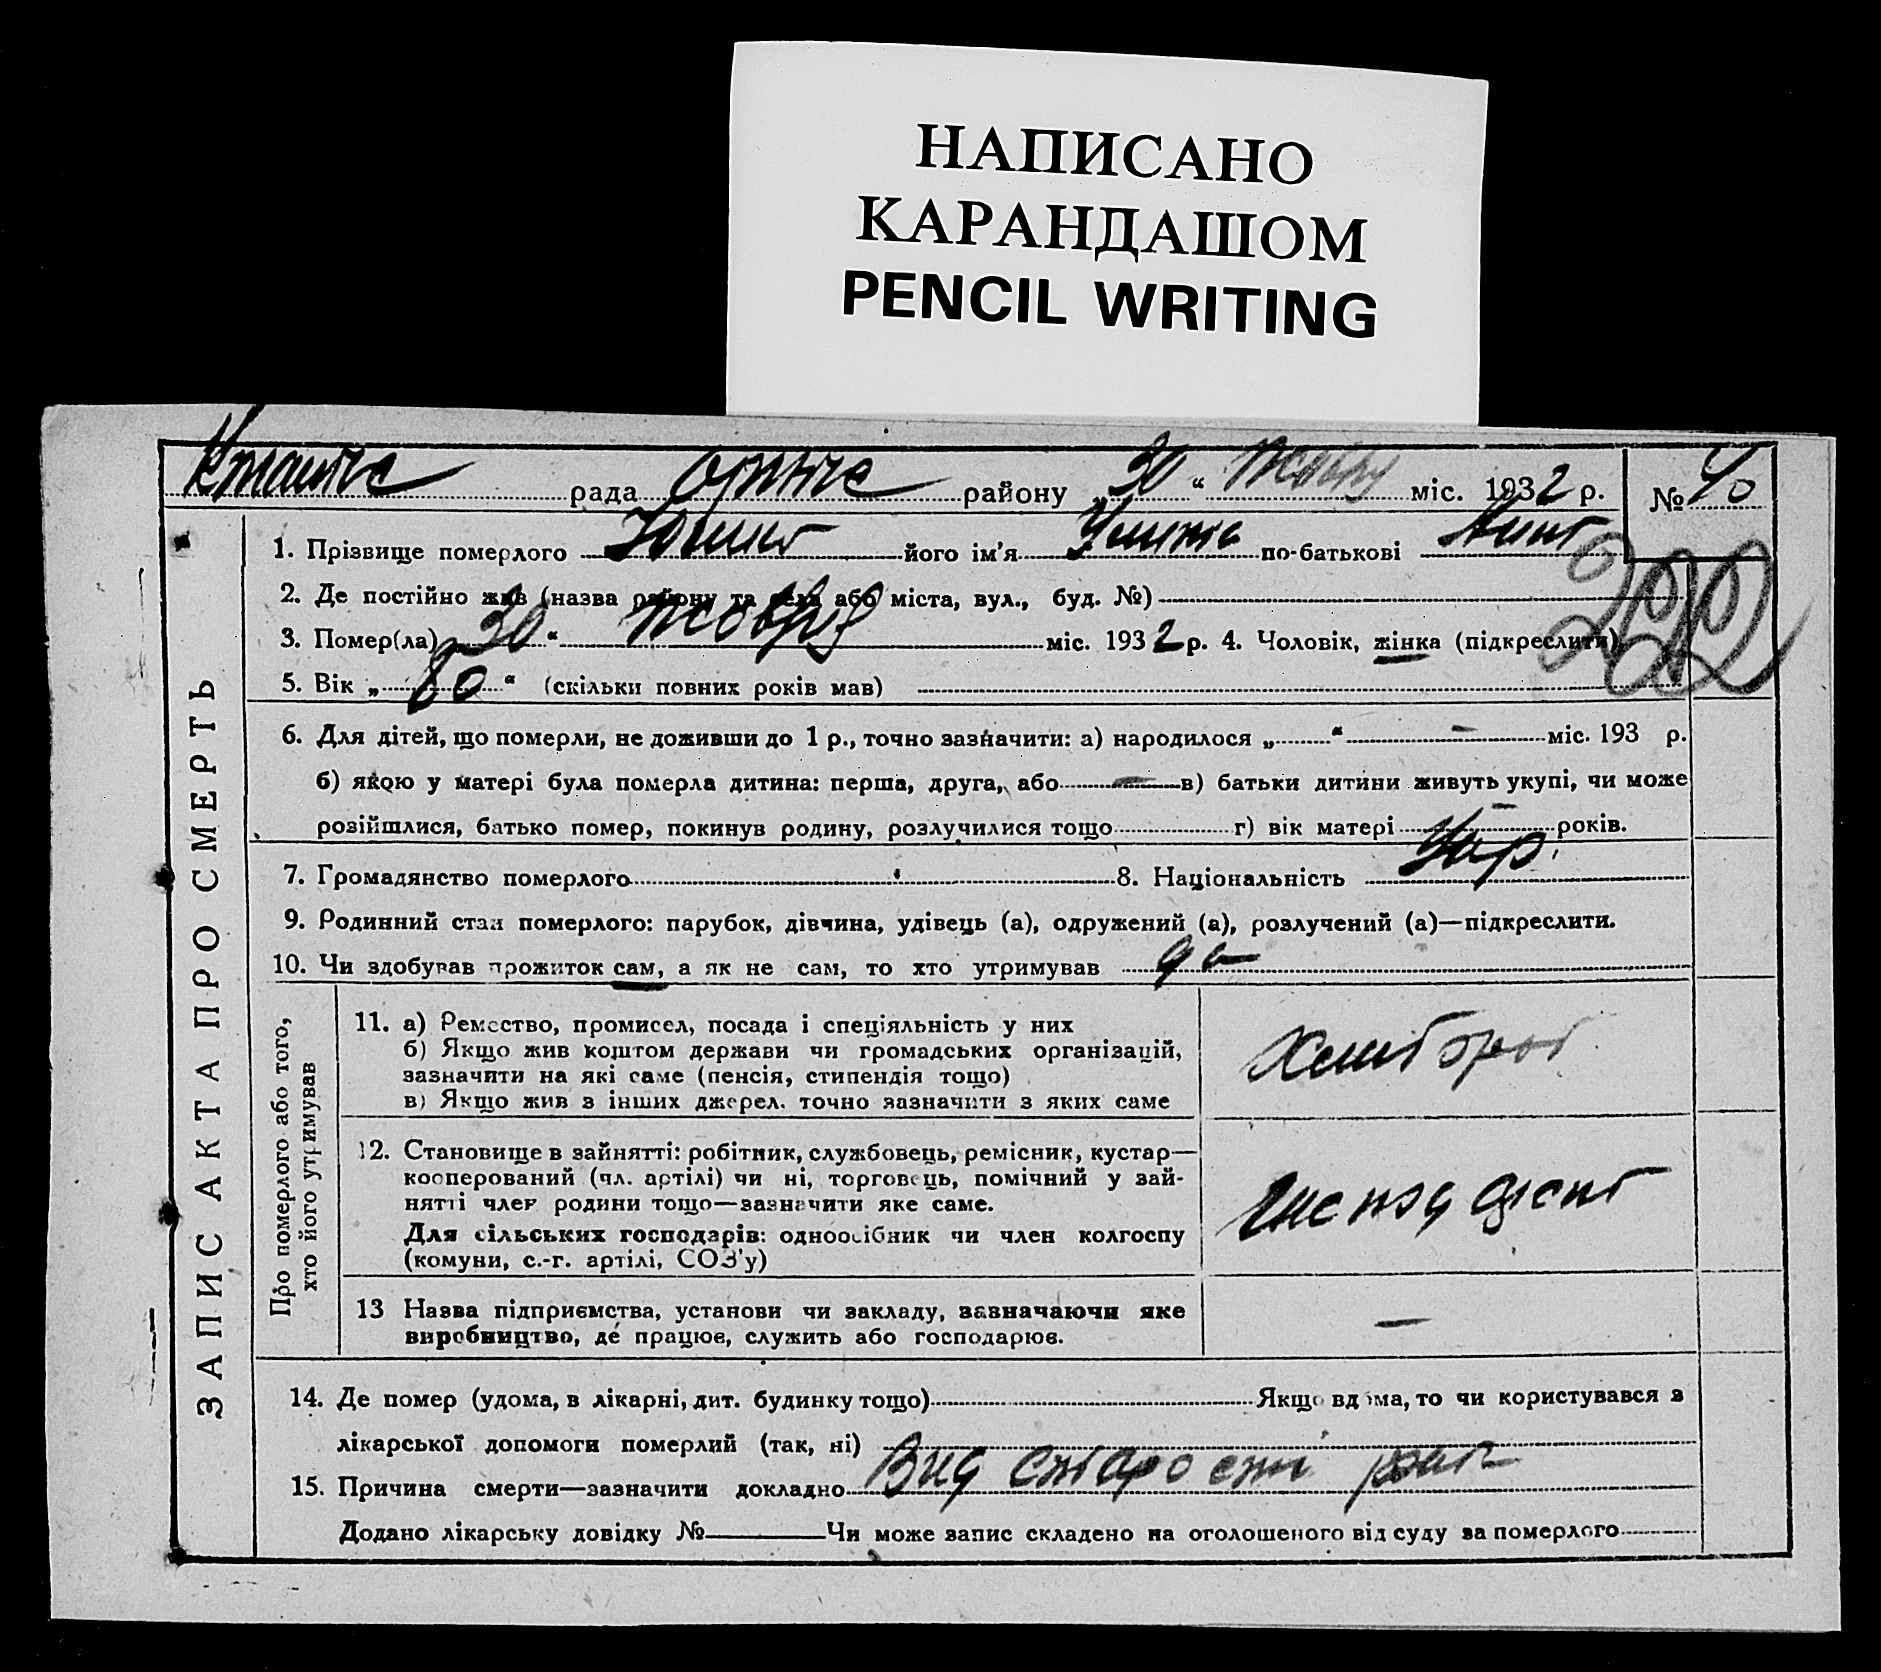 НАПИСАНО
КАРАНДАШОМ
PENCIL WRITING
рада району „30“ міс. 1932 р. № 40
1. Прізвище померлого його ім'я по-батькові
2. Де постійно жив (назва району та села або міста, вул., буд. №)
3. Помер(ла) „30“ жовтня міс. 1932 р. 4. Чоловік, жінка (підкреслити)
222
5. Вік „80“ (скільки повних років мав)
6. Для дітей, що померли, не доживши до 1 р., точно зазначити: а) народилося „ “ — міс. 193 р.
б) якою у матері була померла дитина: перша, друга, або — в) батьки дитини живуть укупі, чи може
розійшлися, батько помер, покинув родину, розлучилися тощо г) вік матері — років.
7. Громадянство померлого 8. Національність Укр.
9. Родинний стан померлого: парубок, дівчина, удівець (а), одружений (а), розлучений (а)—підкреслити.
10. Чи здобував прожиток сам, а як не сам, то хто утримував да
ЗАПИС АКТА ПРО СМЕРТЬ
Про померлого або того,
хто його утримував
11. а) Ремество, промисел, посада і спеціяльність у них
б) Якщо жив коштом держави чи громадських організацій,
зазначити на які саме (пенсія, стипендія тощо)
в) Якщо жив з інших джерел, точно зазначити з яких саме
12. Становище в зайнятті: робітник, службовець, ремісник, кустар—
кооперований (чл. артілі) чи ні, торговець, помічний у зай-
нятті член родини тощо—зазначити яке саме.
Для сільських господарів: одноосібник чи член колгоспу
(комуни, с.-г. артілі, СОЗ'у)
13 Назва підприємства, установи чи закладу, зазначаючи яке
виробництво, де працює, служить або господарює. —
14. Де помер (удома, в лікарні, дит. будинку тощо) Якщо вдома, то чи користувався з
лікарської допомоги померлий (так, ні)
15. Причина смерти—зазначити докладно Вид старости
Додано лікарську довідку № Чи може запис складено на оголошеного від суду за померлого